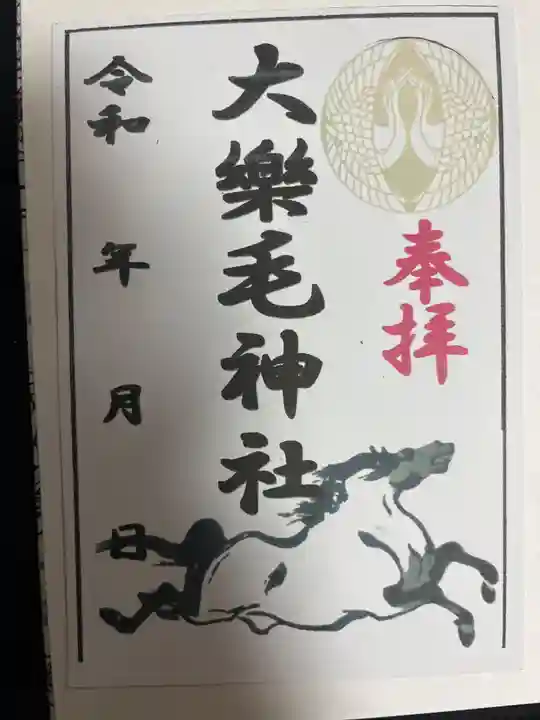 奉拝
大樂毛神社
令和 年 月 日